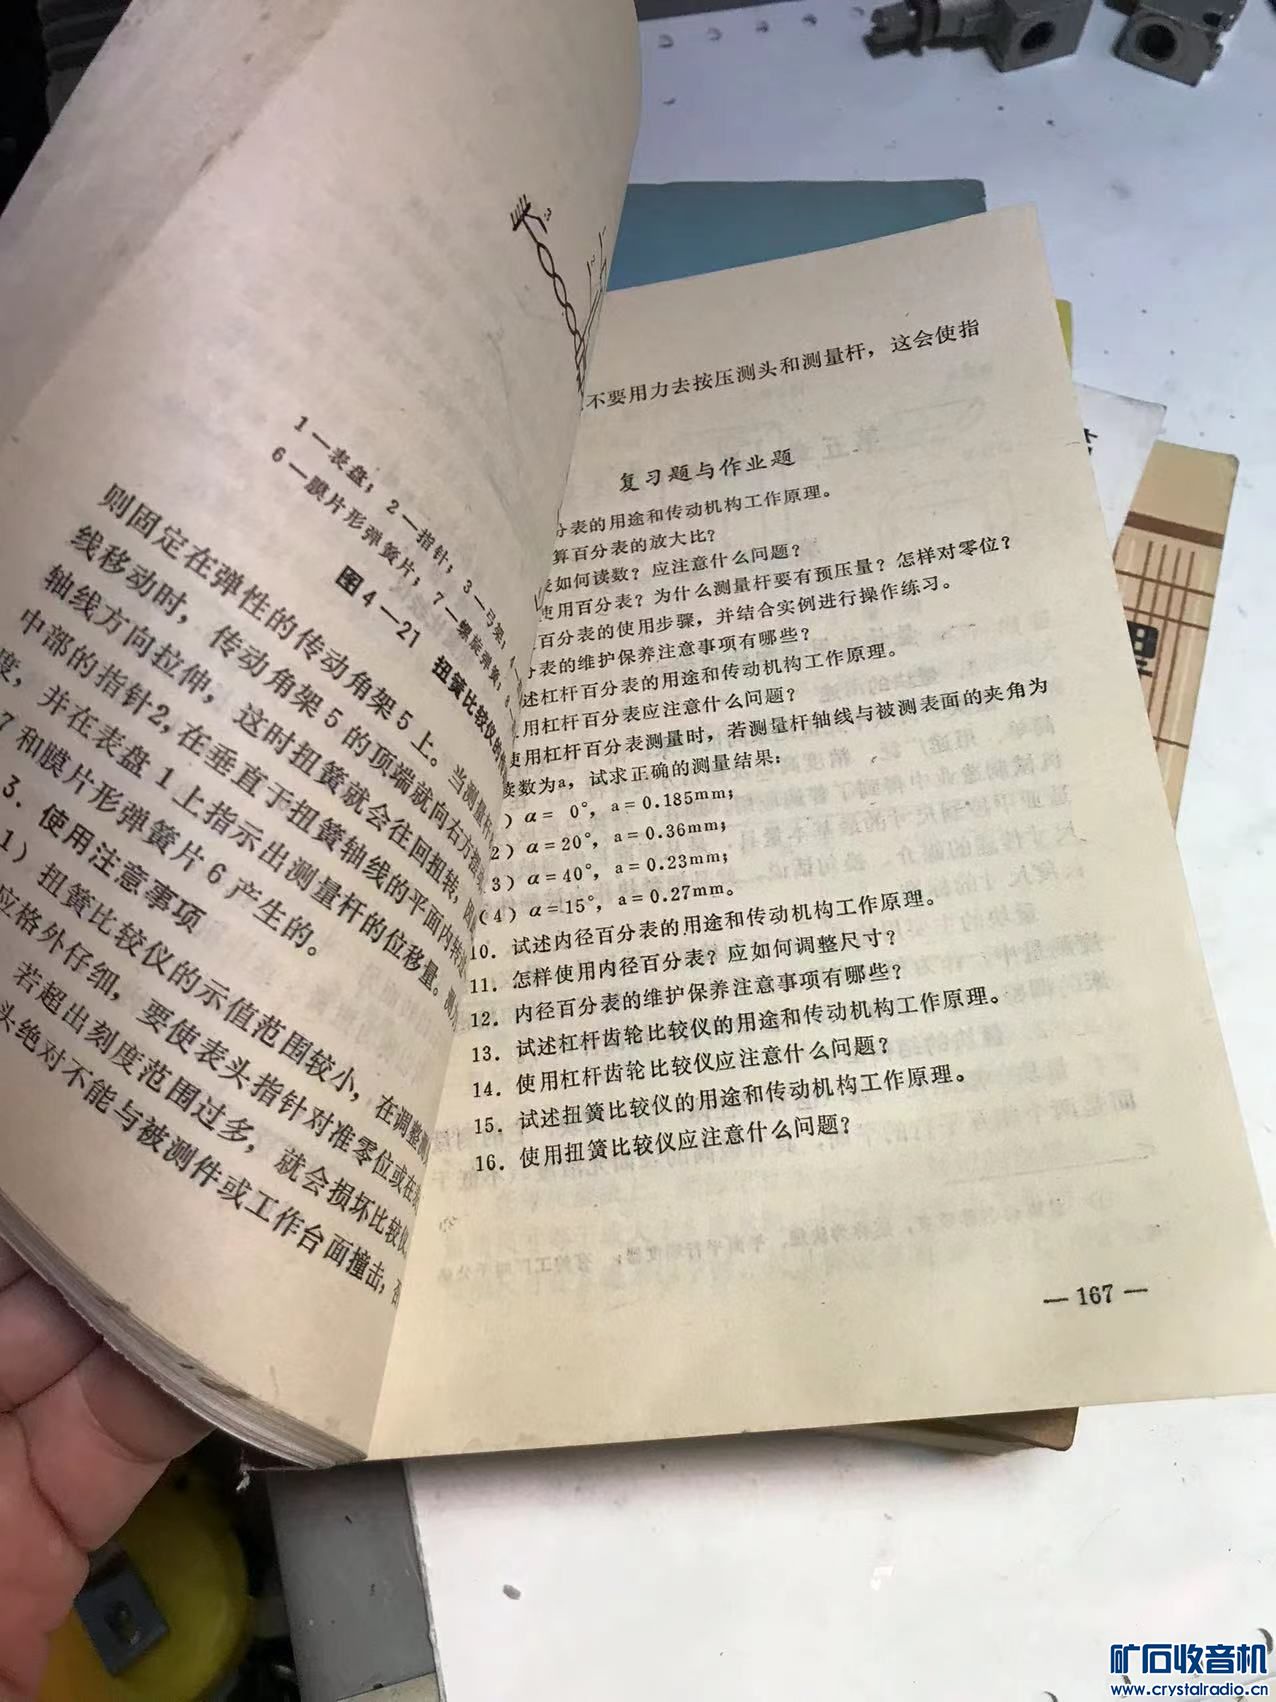 1—表盘；2—指针；3—弓架；
6—膜片形弹簧片；7—螺旋弹簧；
图4—21 扭簧比较仪的
则固定在弹性的传动角架5上。当测量杆
线移动时，传动角架5的顶端就向右方
轴线方向拉伸，这时扭簧就会往回扭转，
中部的指针2，在垂直于扭簧轴线的平面内转
度，并在表盘1上指示出测量杆的位移量。测
7和膜片形弹簧片6产生的。
3．使用注意事项
1）扭簧比较仪的示值范围较小，在调整测
应格外仔细，要使表头指针对准零位或在
若超出刻度范围过多，就会损坏比较仪
头绝对不能与被测件或工作台面撞击，
不要用力去按压测头和测量杆，这会使指
复习题与作业题
分表的用途和传动机构工作原理。
算百分表的放大比？
表如何读数？应注意什么问题？
使用百分表？为什么测量杆要有预压量？怎样对零位？
百分表的使用步骤，并结合实例进行操作练习。
分表的维护保养注意事项有哪些？
述杠杆百分表的用途和传动机构工作原理。
用杠杆百分表应注意什么问题？
使用杠杆百分表测量时，若测量杆轴线与被测表面的夹角为
读数为a，试求正确的测量结果：
）α= 0°，a=0.185mm；
2）α=20°，a=0.36mm；
3）α=40°，a=0.23mm；
（4）α=15°，a=0.27mm。
10．试述内径百分表的用途和传动机构工作原理。
11．怎样使用内径百分表？应如何调整尺寸？
12．内径百分表的维护保养注意事项有哪些？
13．试述杠杆齿轮比较仪的用途和传动机构工作原理。
14．使用杠杆齿轮比较仪应注意什么问题？
15．试述扭簧比较仪的用途和传动机构工作原理。
16．使用扭簧比较仪应注意什么问题？
— 167 —
矿石收音机
www.crystalradio.cn